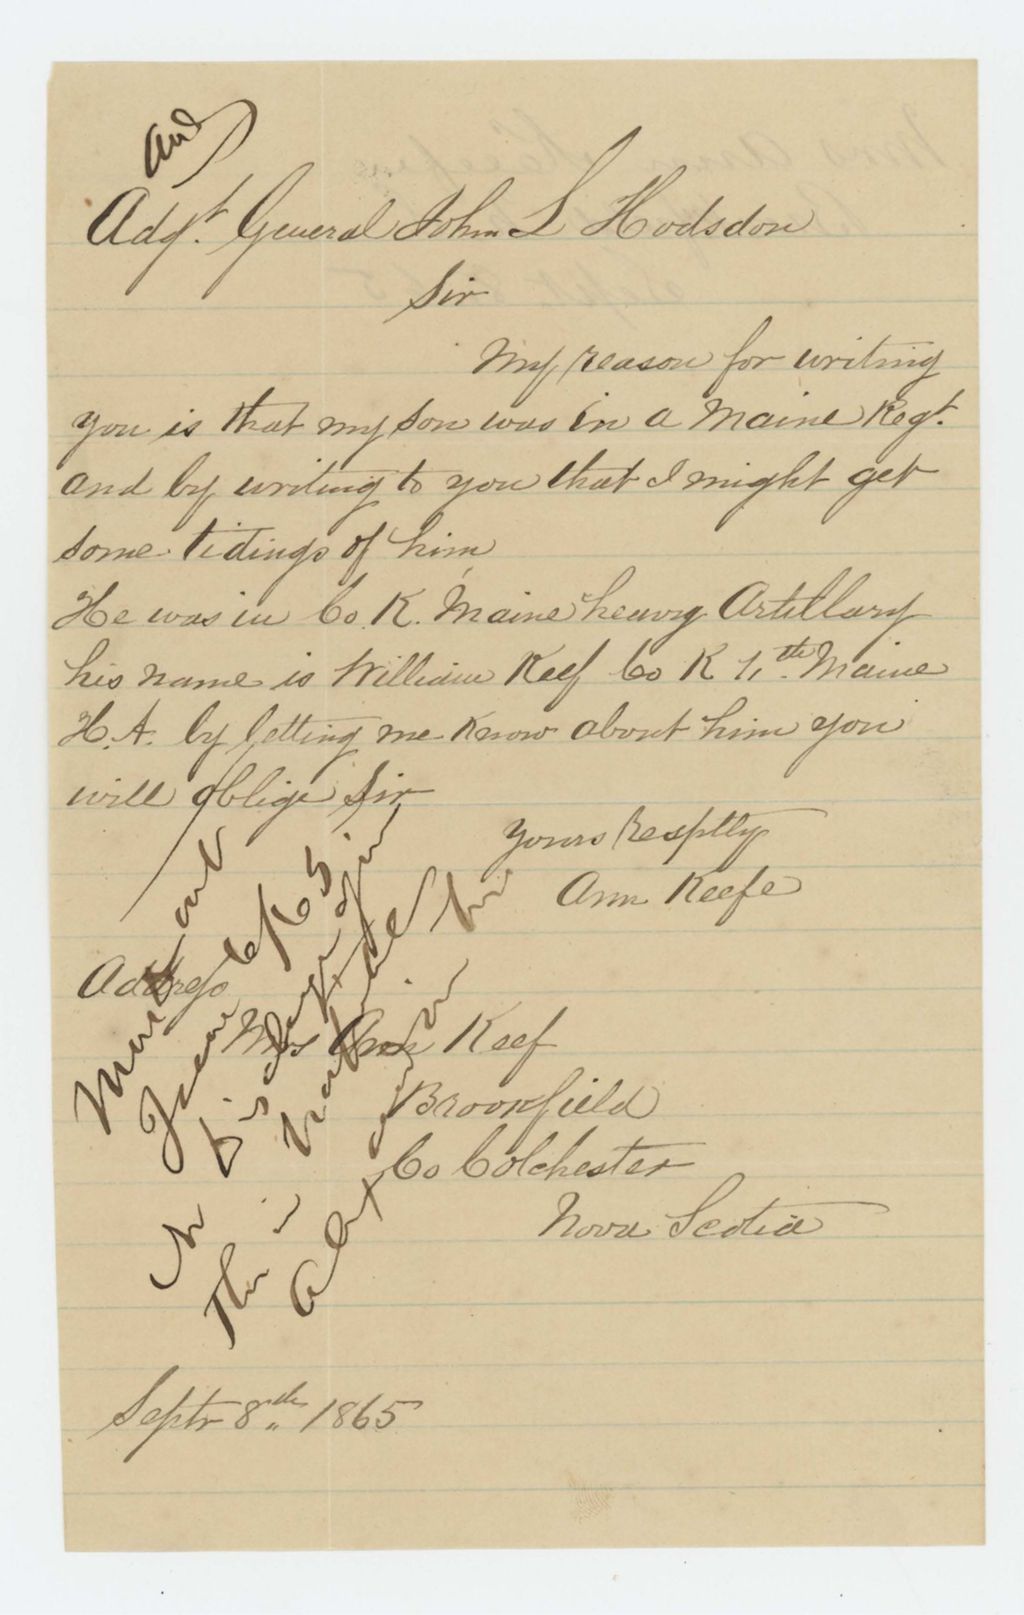 and
Adgt. General John L Hodsdon
Sir
My reason for writing
you is that my son was in a Maine Regt.
and by writing to you that I might get
some tidings of him
He was in Co. K. Maine heavy Artillary
his name is William Keef Co K 1th. Maine
H. A. by letting me know about him you
will oblige Sir
Yours Resptly
Ann Keefe
Address
Mrs Ann Keef
Brookfield
Co Colchester
Nova Scotia
Septr 8th 1865
Must out
June 6/65
Discharge
This is